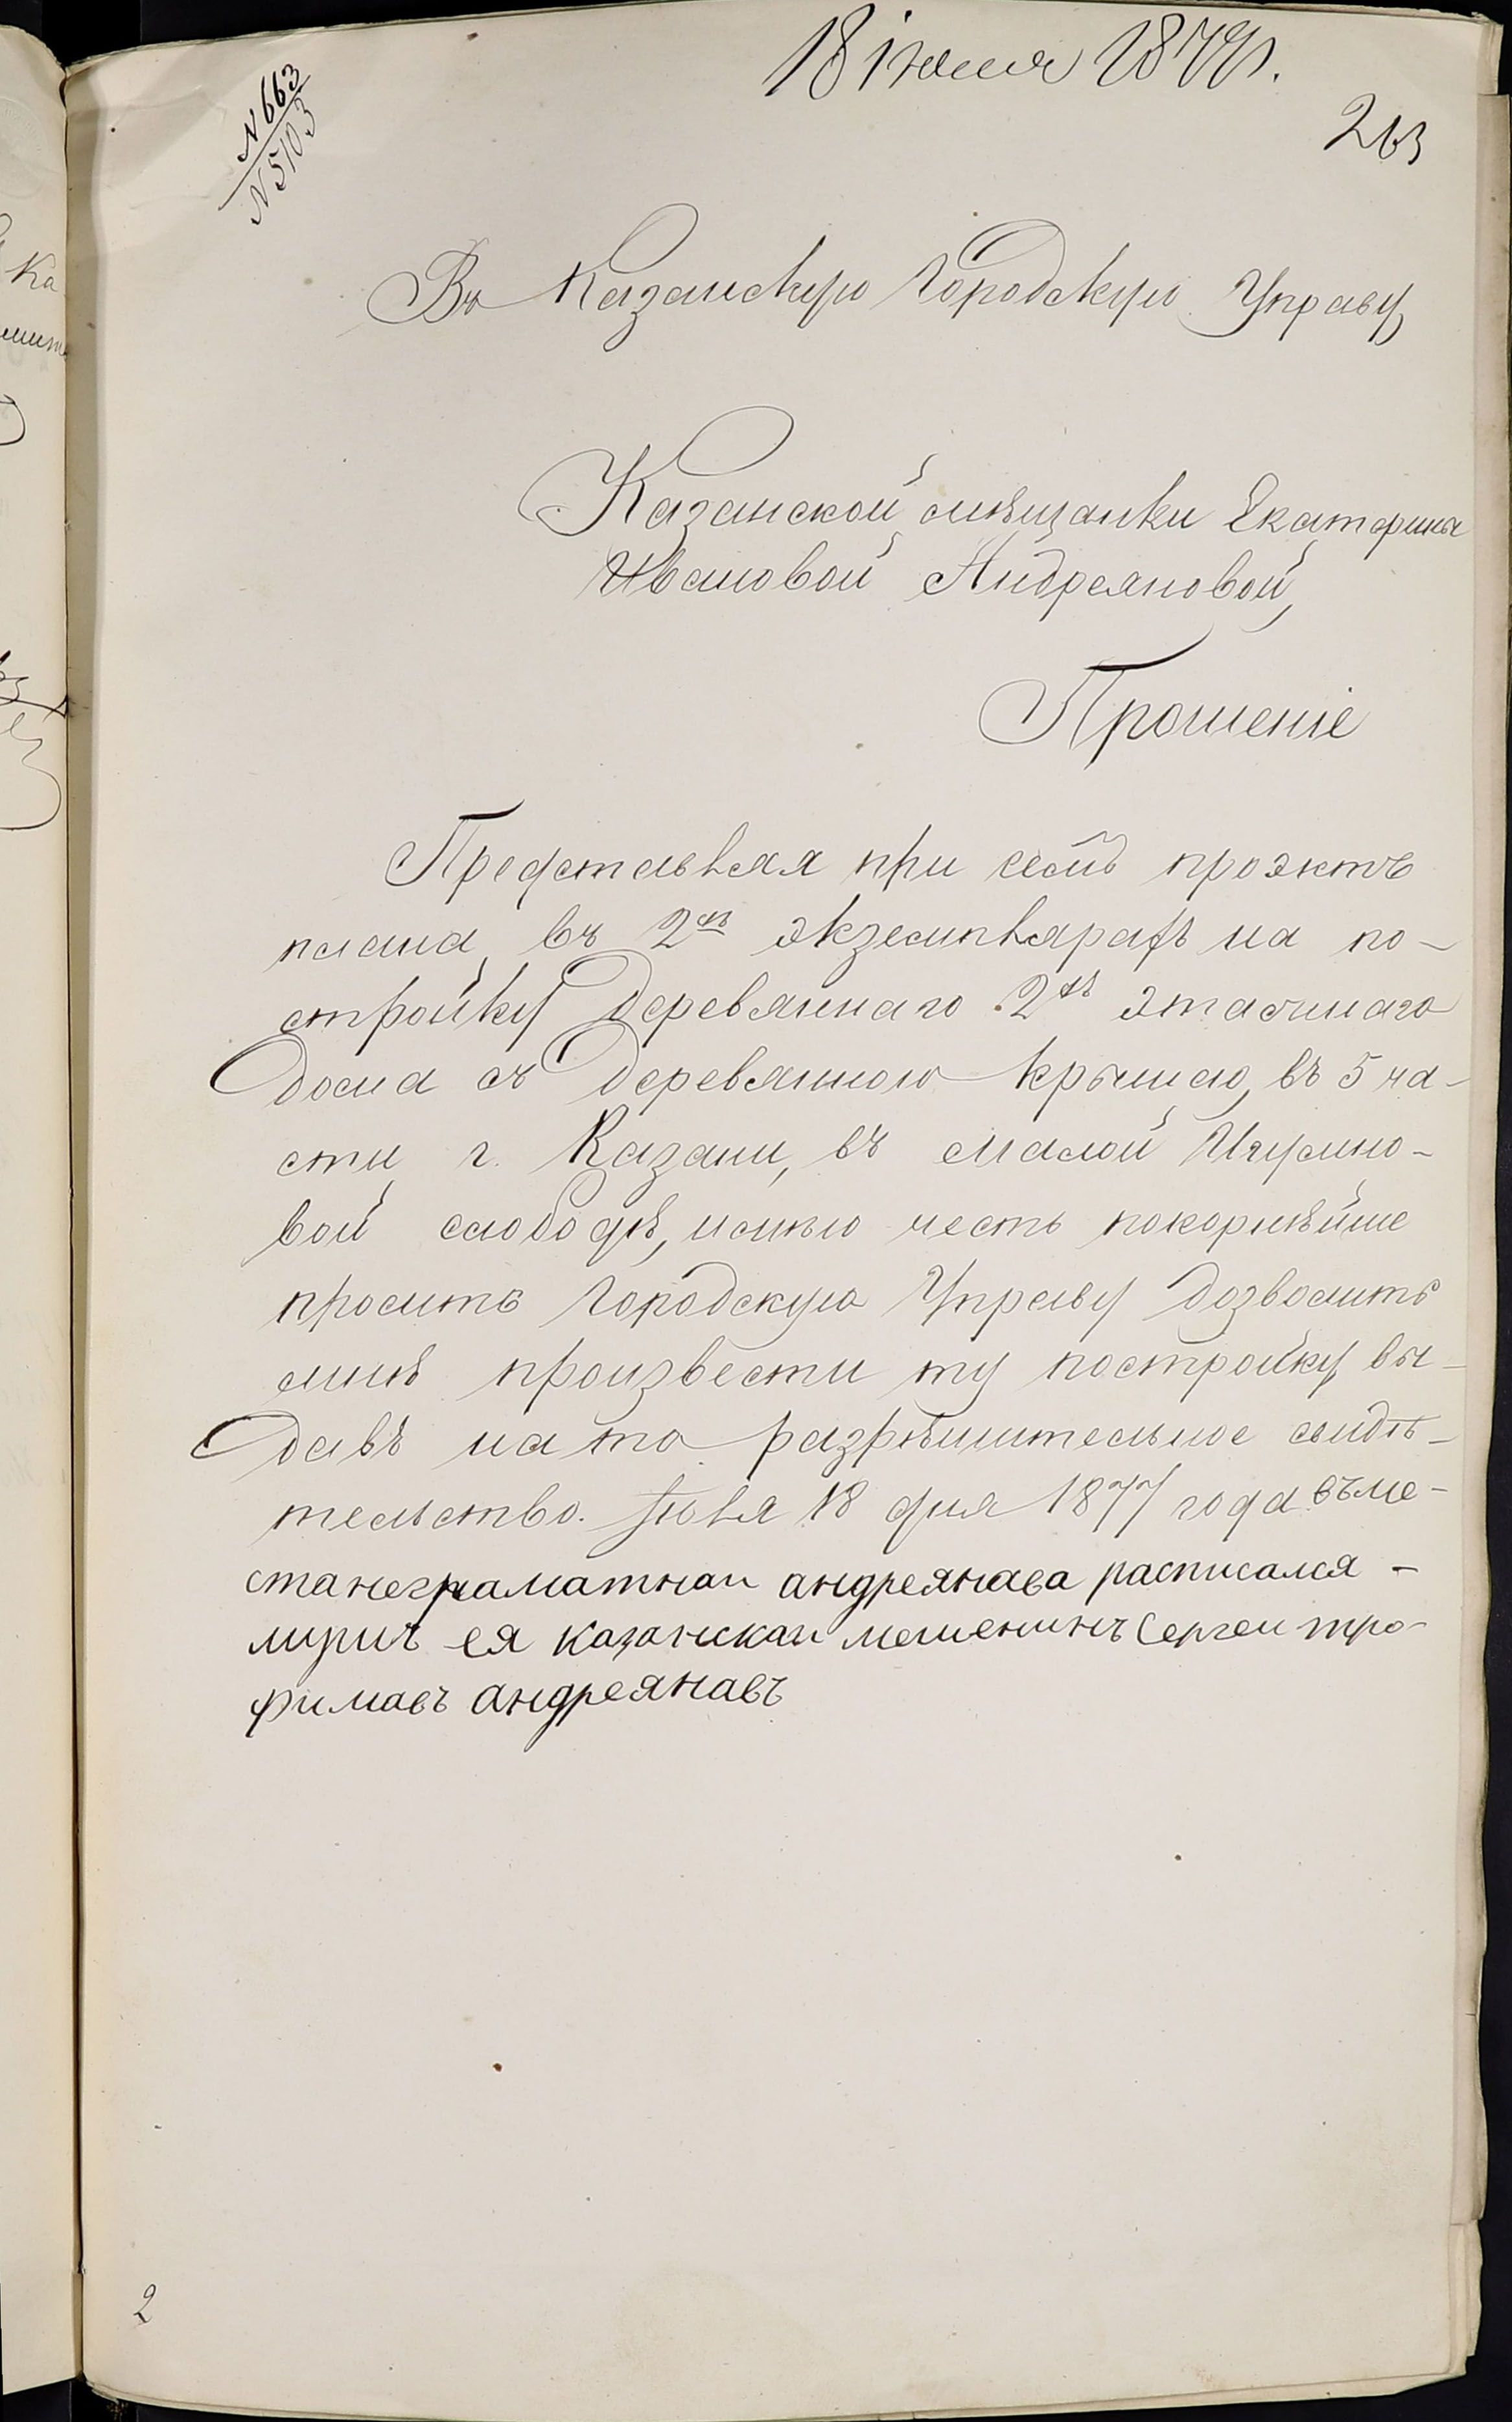 18 іюля 1877.
263
N 663
N 5103
Въ Казанскую Городскую Управу
Казанской мѣщанки Екатерины
Ивановой Андреяновой,
Прошеніе
Представляя при семъ проэктъ
плана, въ 2хъ экземплярахъ на по-
стройку деревяннаго 2хъ этажнаго
дома съ деревянною крышею, въ 5 ча-
сти, г. Казани, въ малой Игумно-
вой слободѣ, имѣю честь покорнѣйше
просить Городскую Управу дозволить
мнѣ произвести ту постройку, вы-
давъ на то разрѣшительное свидѣ-
тельство. Іюля 18 дня 1877 года въме-
станеграматнаи андреянава расписался -
мужъ ея казанскаи мешенинъ Сергеи тро-
фимавъ андреянавъ
2